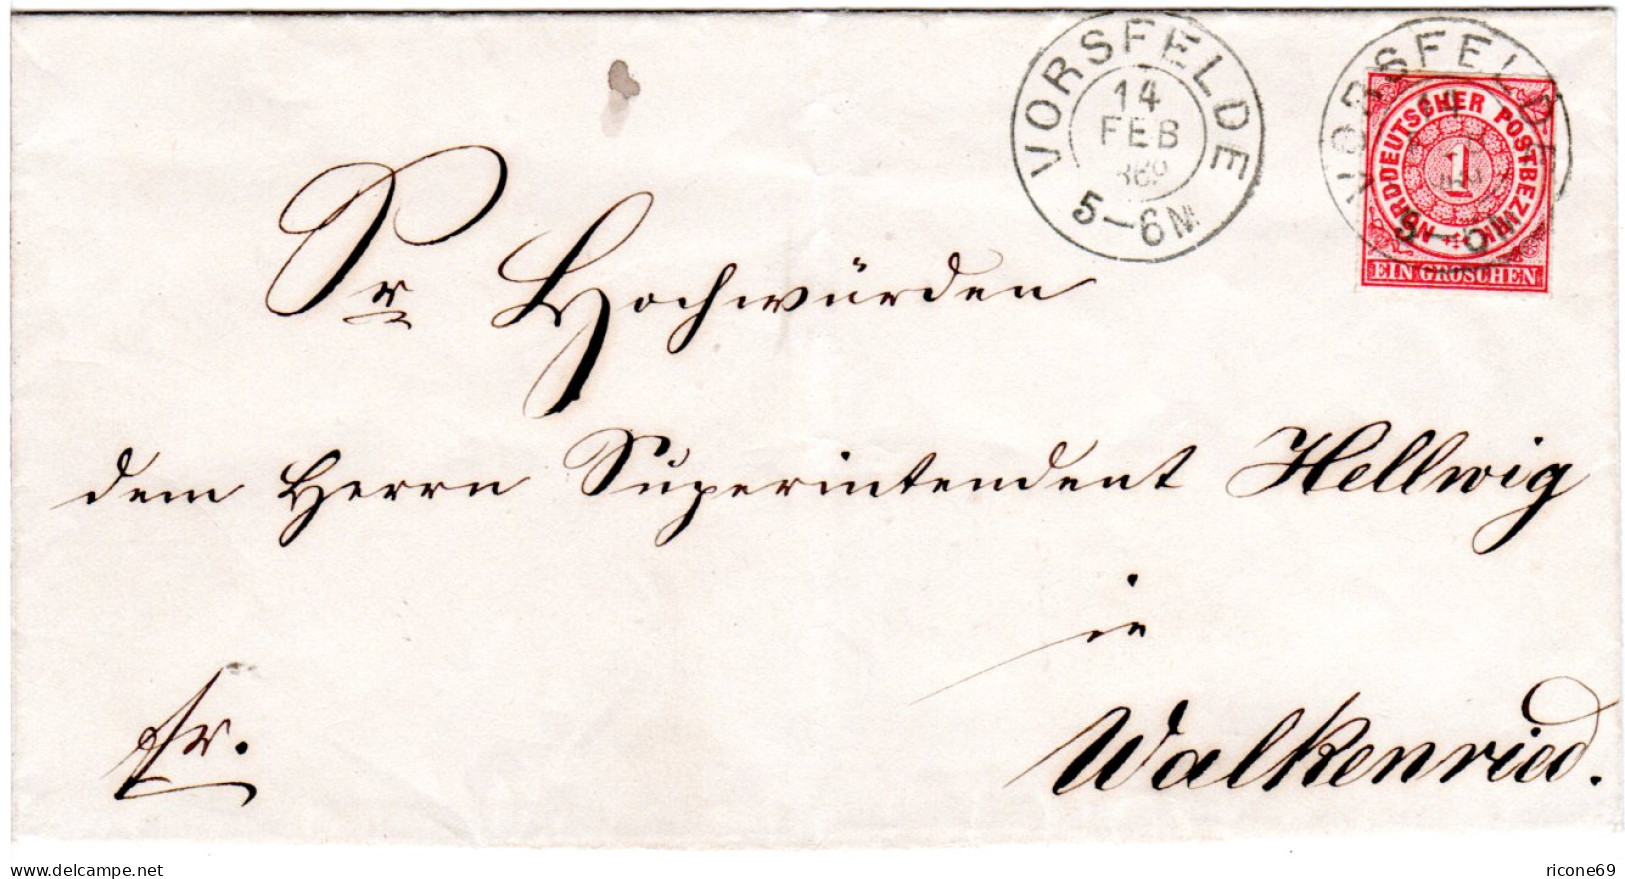 VORSFELDE
14
FEB
5-6 M
VORSFELDE
NORDDEUTSCHER POSTBEZIRK
1
EIN GROSCHEN
Sr Hochwürden
dem Herrn Superintendent Hellwig
in
fr.
Walkenried.
delcampe.net
ricone69